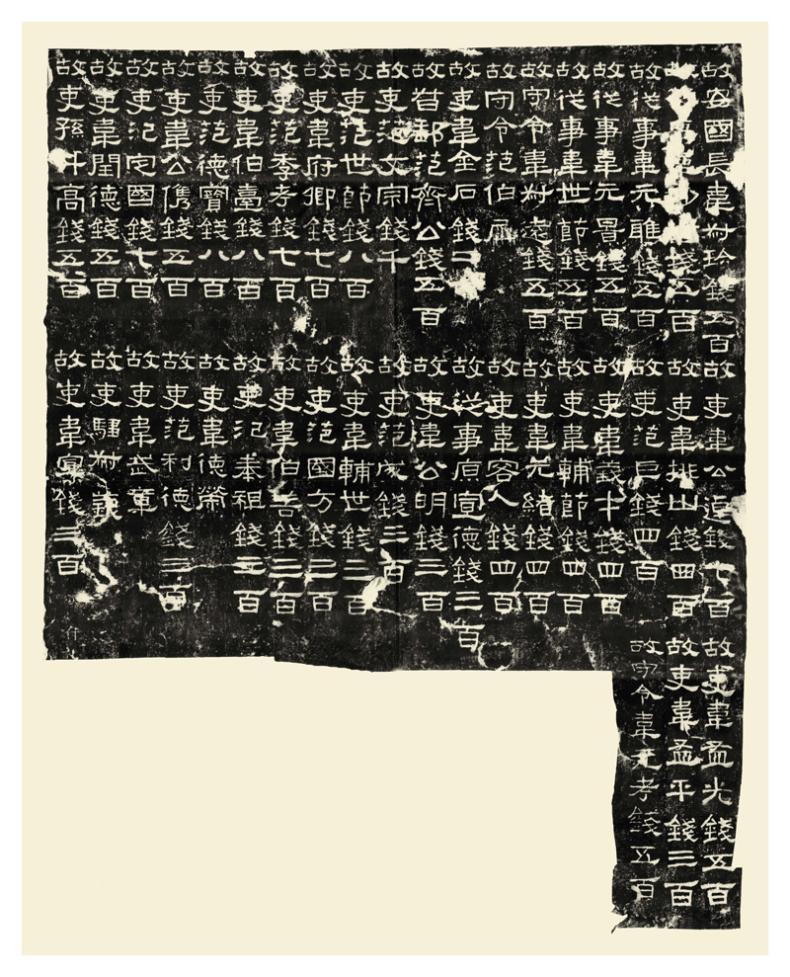 故安國長韋叔珍錢五百
故錢五百
故從事韋元雅錢五百
故從事韋元景錢五百
故從事韋世節錢五百
故守令韋叔遠錢五百
故守令范伯犀
故吏韋金石錢二
故督郵范齊公錢五百
故吏范文宗錢千
故吏范世節錢八百
故吏韋府卿錢七百
故吏范季考錢七百
故吏韋伯臺錢八百
故吏范德寶錢八百
故吏韋公儁錢五百
故吏氾定國錢七百
故吏韋閏德錢五百
故吏孫升高錢五百
故吏韋公逴錢七百
故吏韋排山錢四百
故吏范巨錢四百
故吏韋義才錢四百
故吏韋輔節錢四百
故吏韋元緒錢四百
故吏韋容人錢四百
故從事原宣德錢三百
故吏韋公明錢三百
故吏范成錢三百
故吏韋輔世錢三百
故吏范國方錢三百
故吏韋伯善錢三百
故吏氾奉祖錢三百
故吏韋德榮
故吏范利德錢三百
故吏韋武章
故吏騶叔義
故吏韋宣錢三百
故吏韋孟光錢五百
故吏韋孟平錢三百
故守令韋元考錢五百